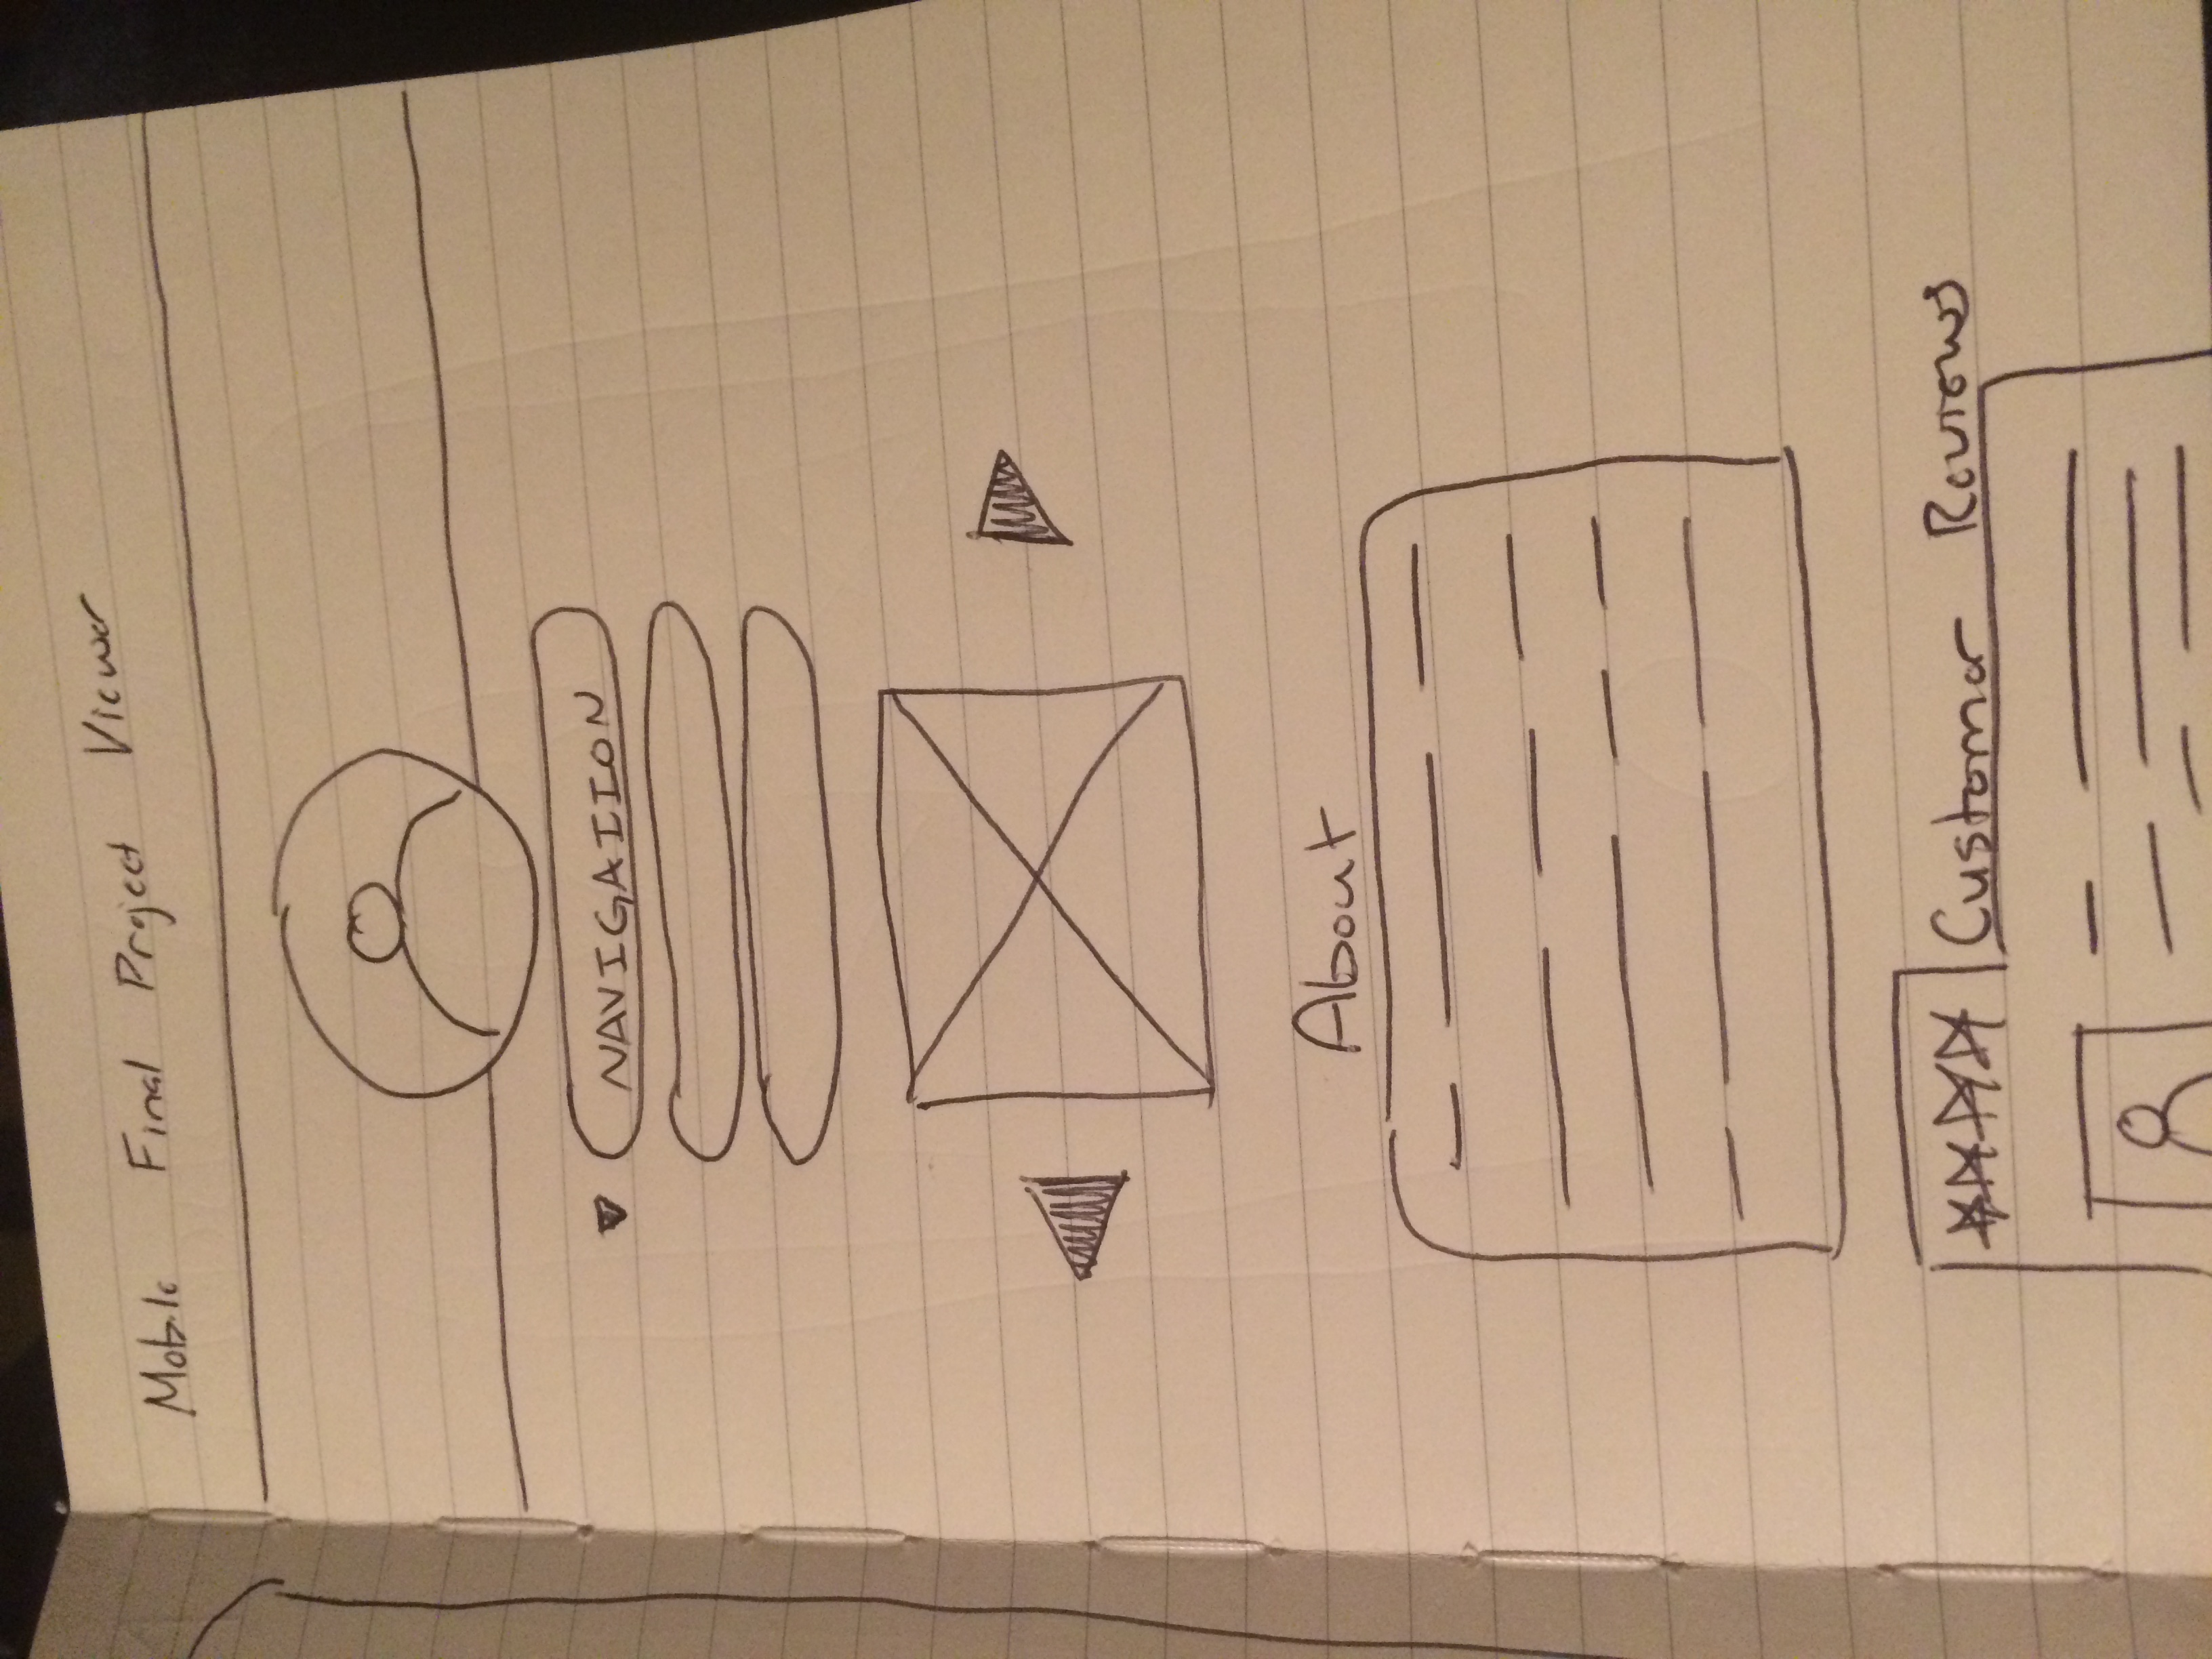 Mobile Final Project Viewer
NAVIGATIION
About
Customer Reviews